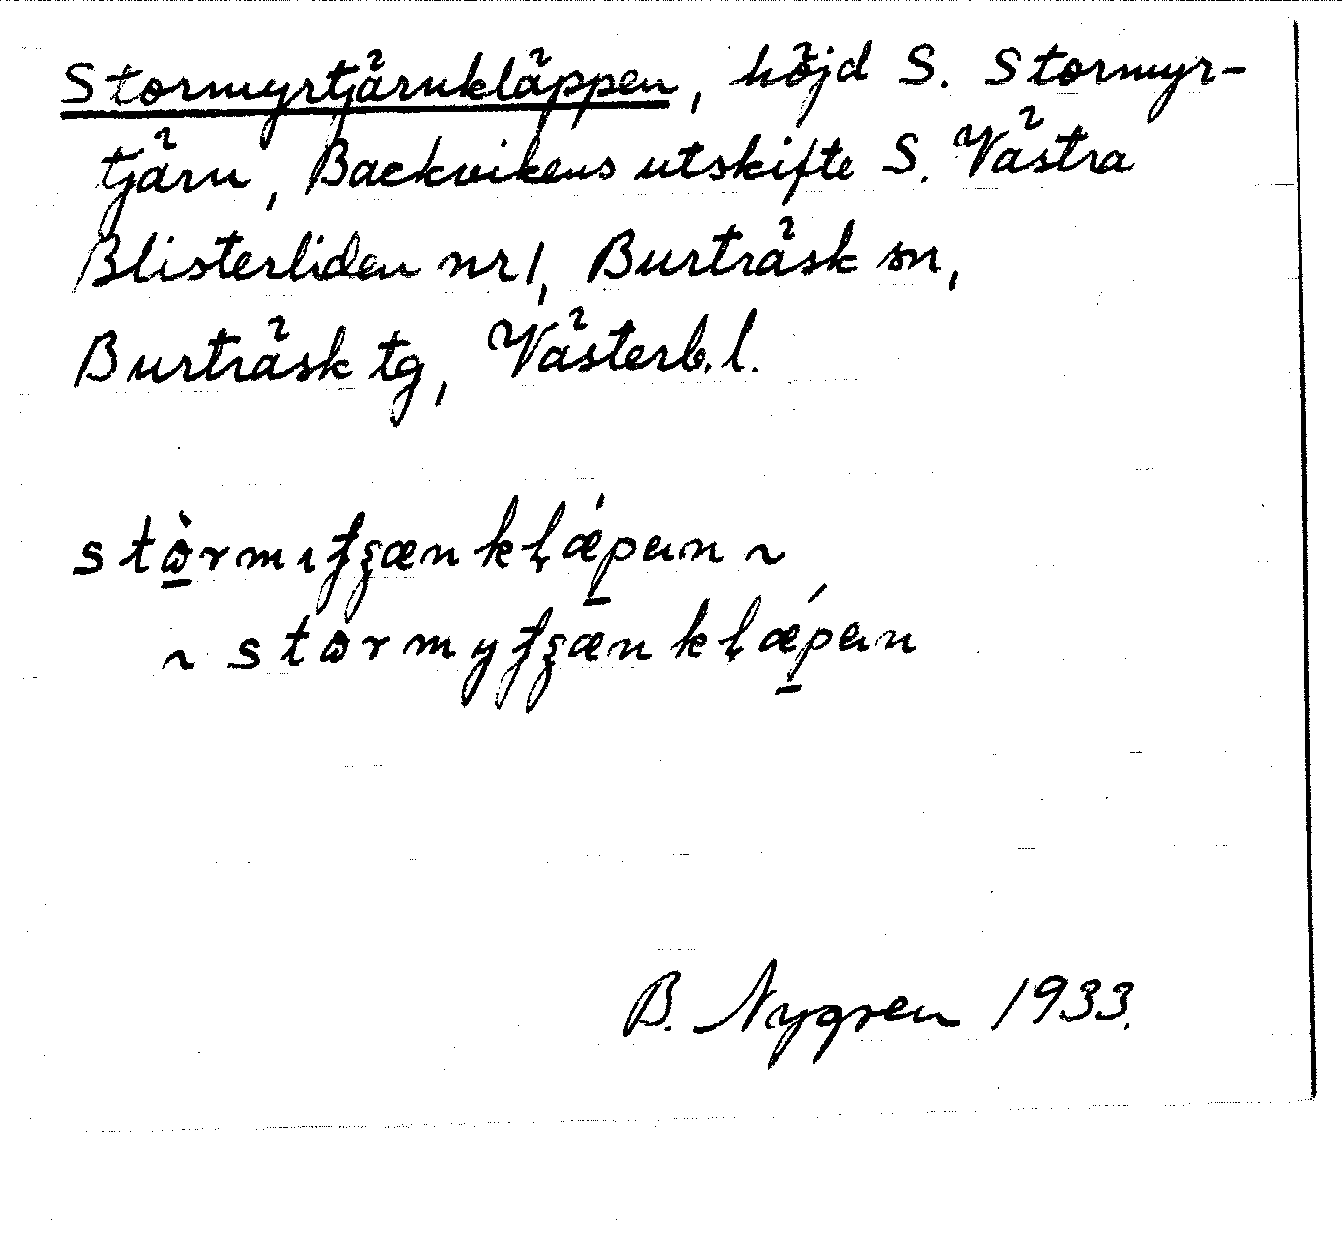 Stormyrtjärnkläppen, höjd S. Stormyr-
tjärn, Backvikens utskifte S. Västra
Blisterliden nr 1, Burträsk sn,
Burträsk tg, Västerb. l.
B. Nygren 1933.